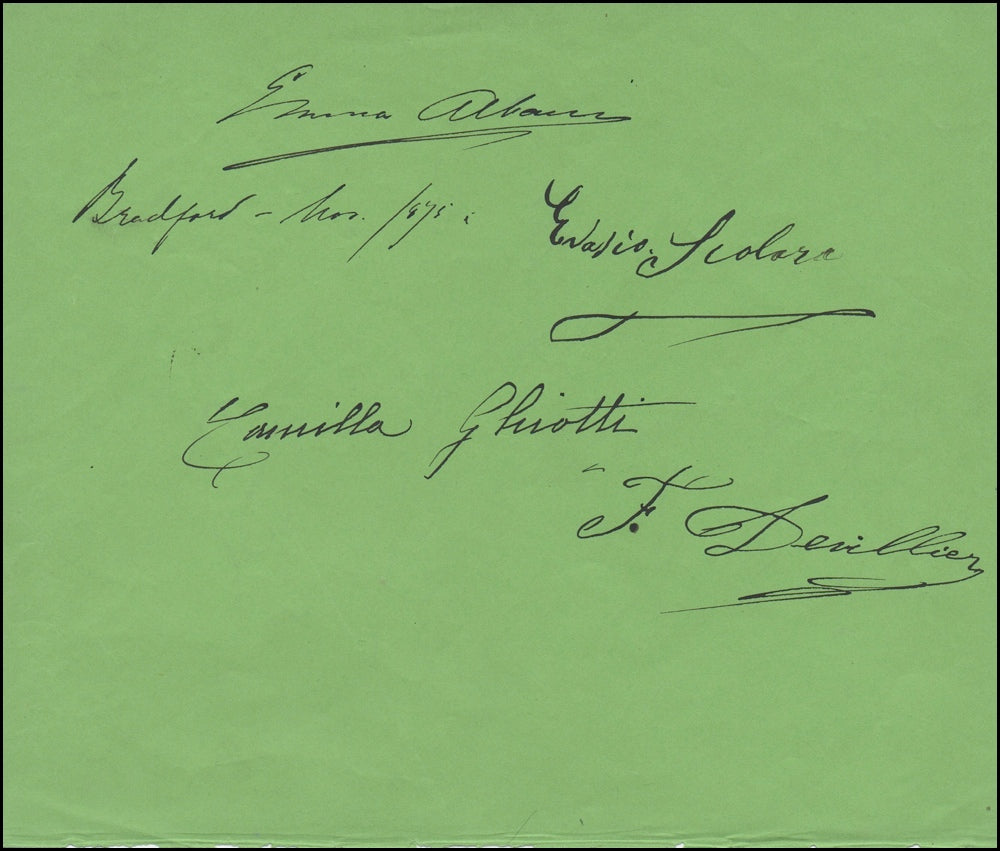 Emma Albani
Bradford - Nov. 1875.
Evasio Scolara
Camilla Ghiotti
F. Devillier